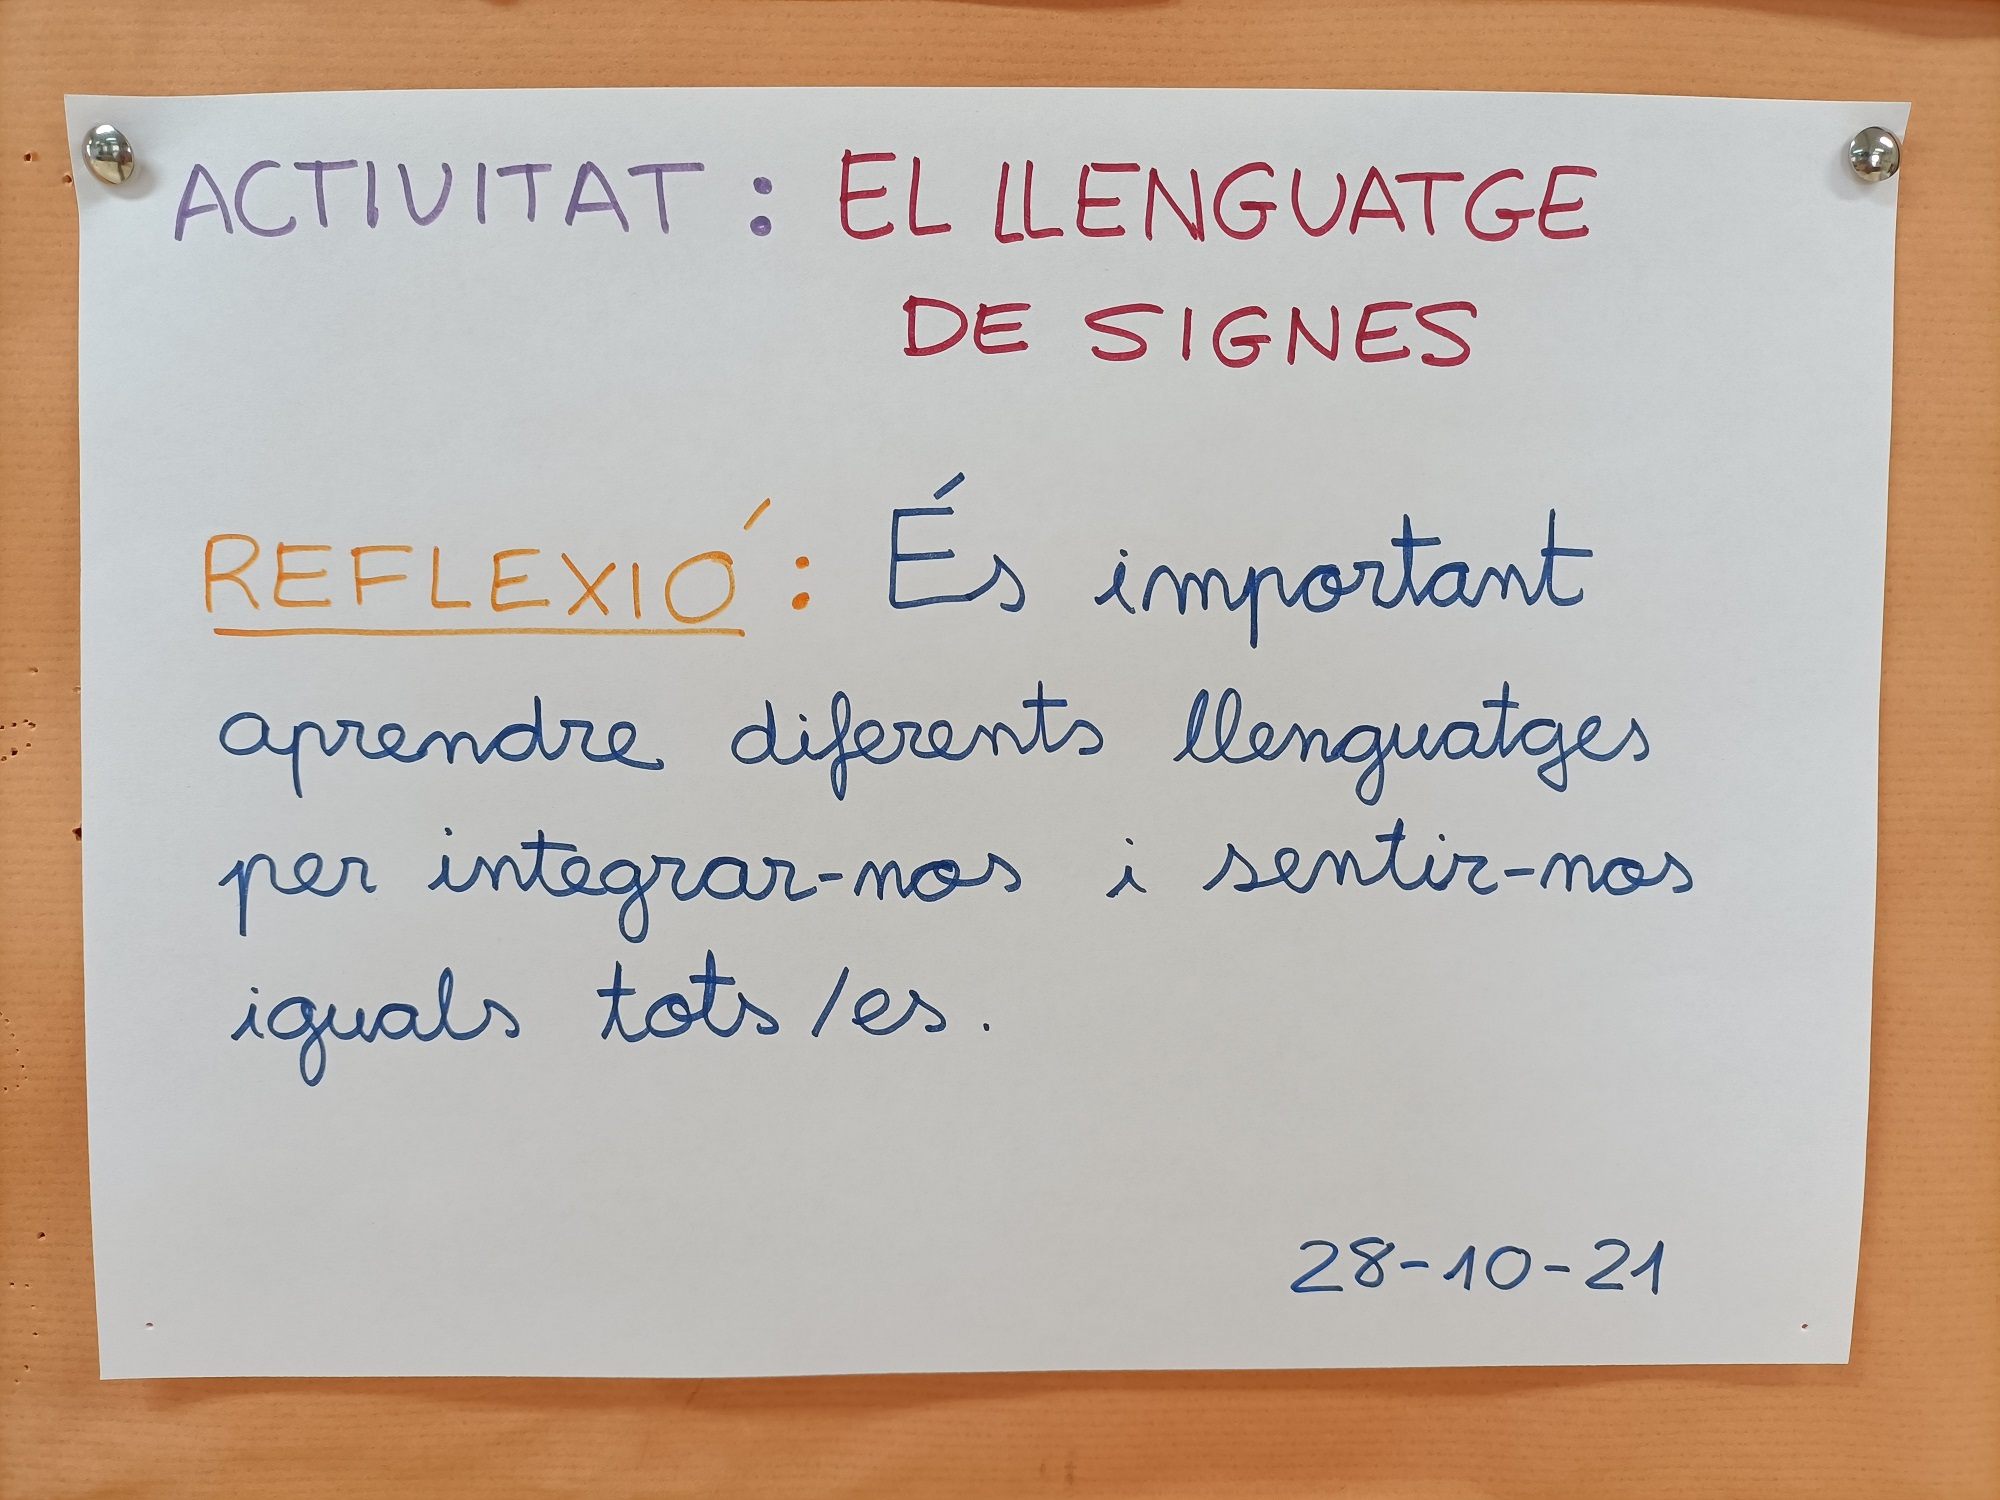 ACTIVITAT : EL LLENGUATGE
DE SIGNES
REFLEXIÓ : És important
aprendre diferents llenguatges
per integrar-nos i sentir-nos
iguals tots/es.
28-10-21